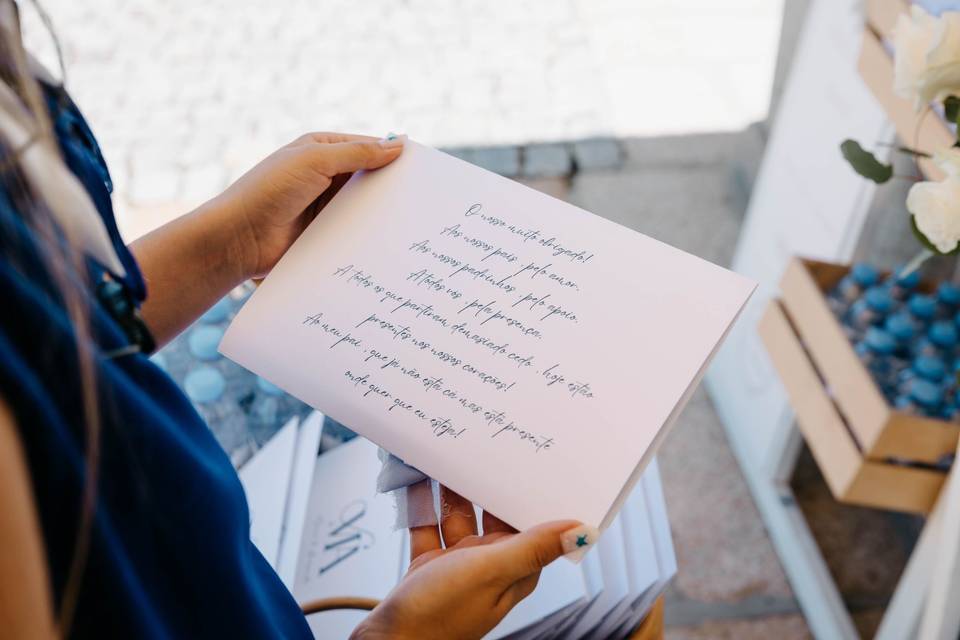 O nosso muito obrigado!
Aos nossos pais, pelo amor.
Aos nossos padrinhos, pelo apoio.
A todos vós, pela presença.
A todos os que partiram demasiado cedo, hoje estão
presentes nos nossos corações!
Ao meu pai, que já não está cá mas está presente
onde quer que eu esteja!